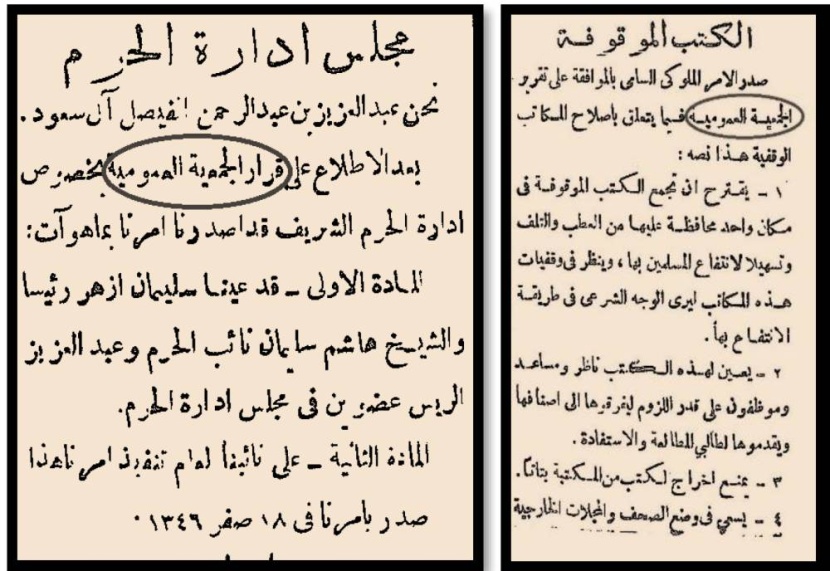 مجلس ادارة الحرم
نحن عبدالعزيز بن عبدالرحمن الفيصل آل سعود .
بعد الاطلاع على قرار الجمعية العمومية بخصوص
ادارة الحرم الشريف قد اصدرنا امرنا بما هو آت :
المادة الاولى ـ قد عينا سليمان ازهر رئيسا
والشيخ هاشم سليمان نائب الحرم وعبد العزيز
الريس عضوين فى مجلس ادارة الحرم.
المادة الثانية ـ على نائبنا العام تنفيذ امرنا هذا
صدر بامرنا فى ١٨ صفر ١٣٤٦ ٠
الكتب الموقوفة
صدر الامر الملوكى السامى بالموافقة على تقرير
الجمعية العمومية فيما يتعلق باصلاح المكاتب
الوقفية هذا نصه :
١ ـ يقترح ان تجمع الكتب الموقوفة فى
مكان واحد محافظة عليها من العطب والتلف
وتسهيلا لانتفاع المسلمين بها ، وينظر فى وقفيات
هذه المكاتب ليرى الوجه الشرعى فى طريقة
الانتفاع بها .
٢ ـ يعين لهذه الكتب ناظر ومساعد
وموظفون على قدر اللزوم ليفرقوها الى اصنافها
ويقدموها لطالبي المطالعة والاستفادة .
٣ ـ يمنع اخراج الكتب من المكتبة بتاتا .
٤ ـ يسمي فى وضع الصحف والمجلات الخارجية